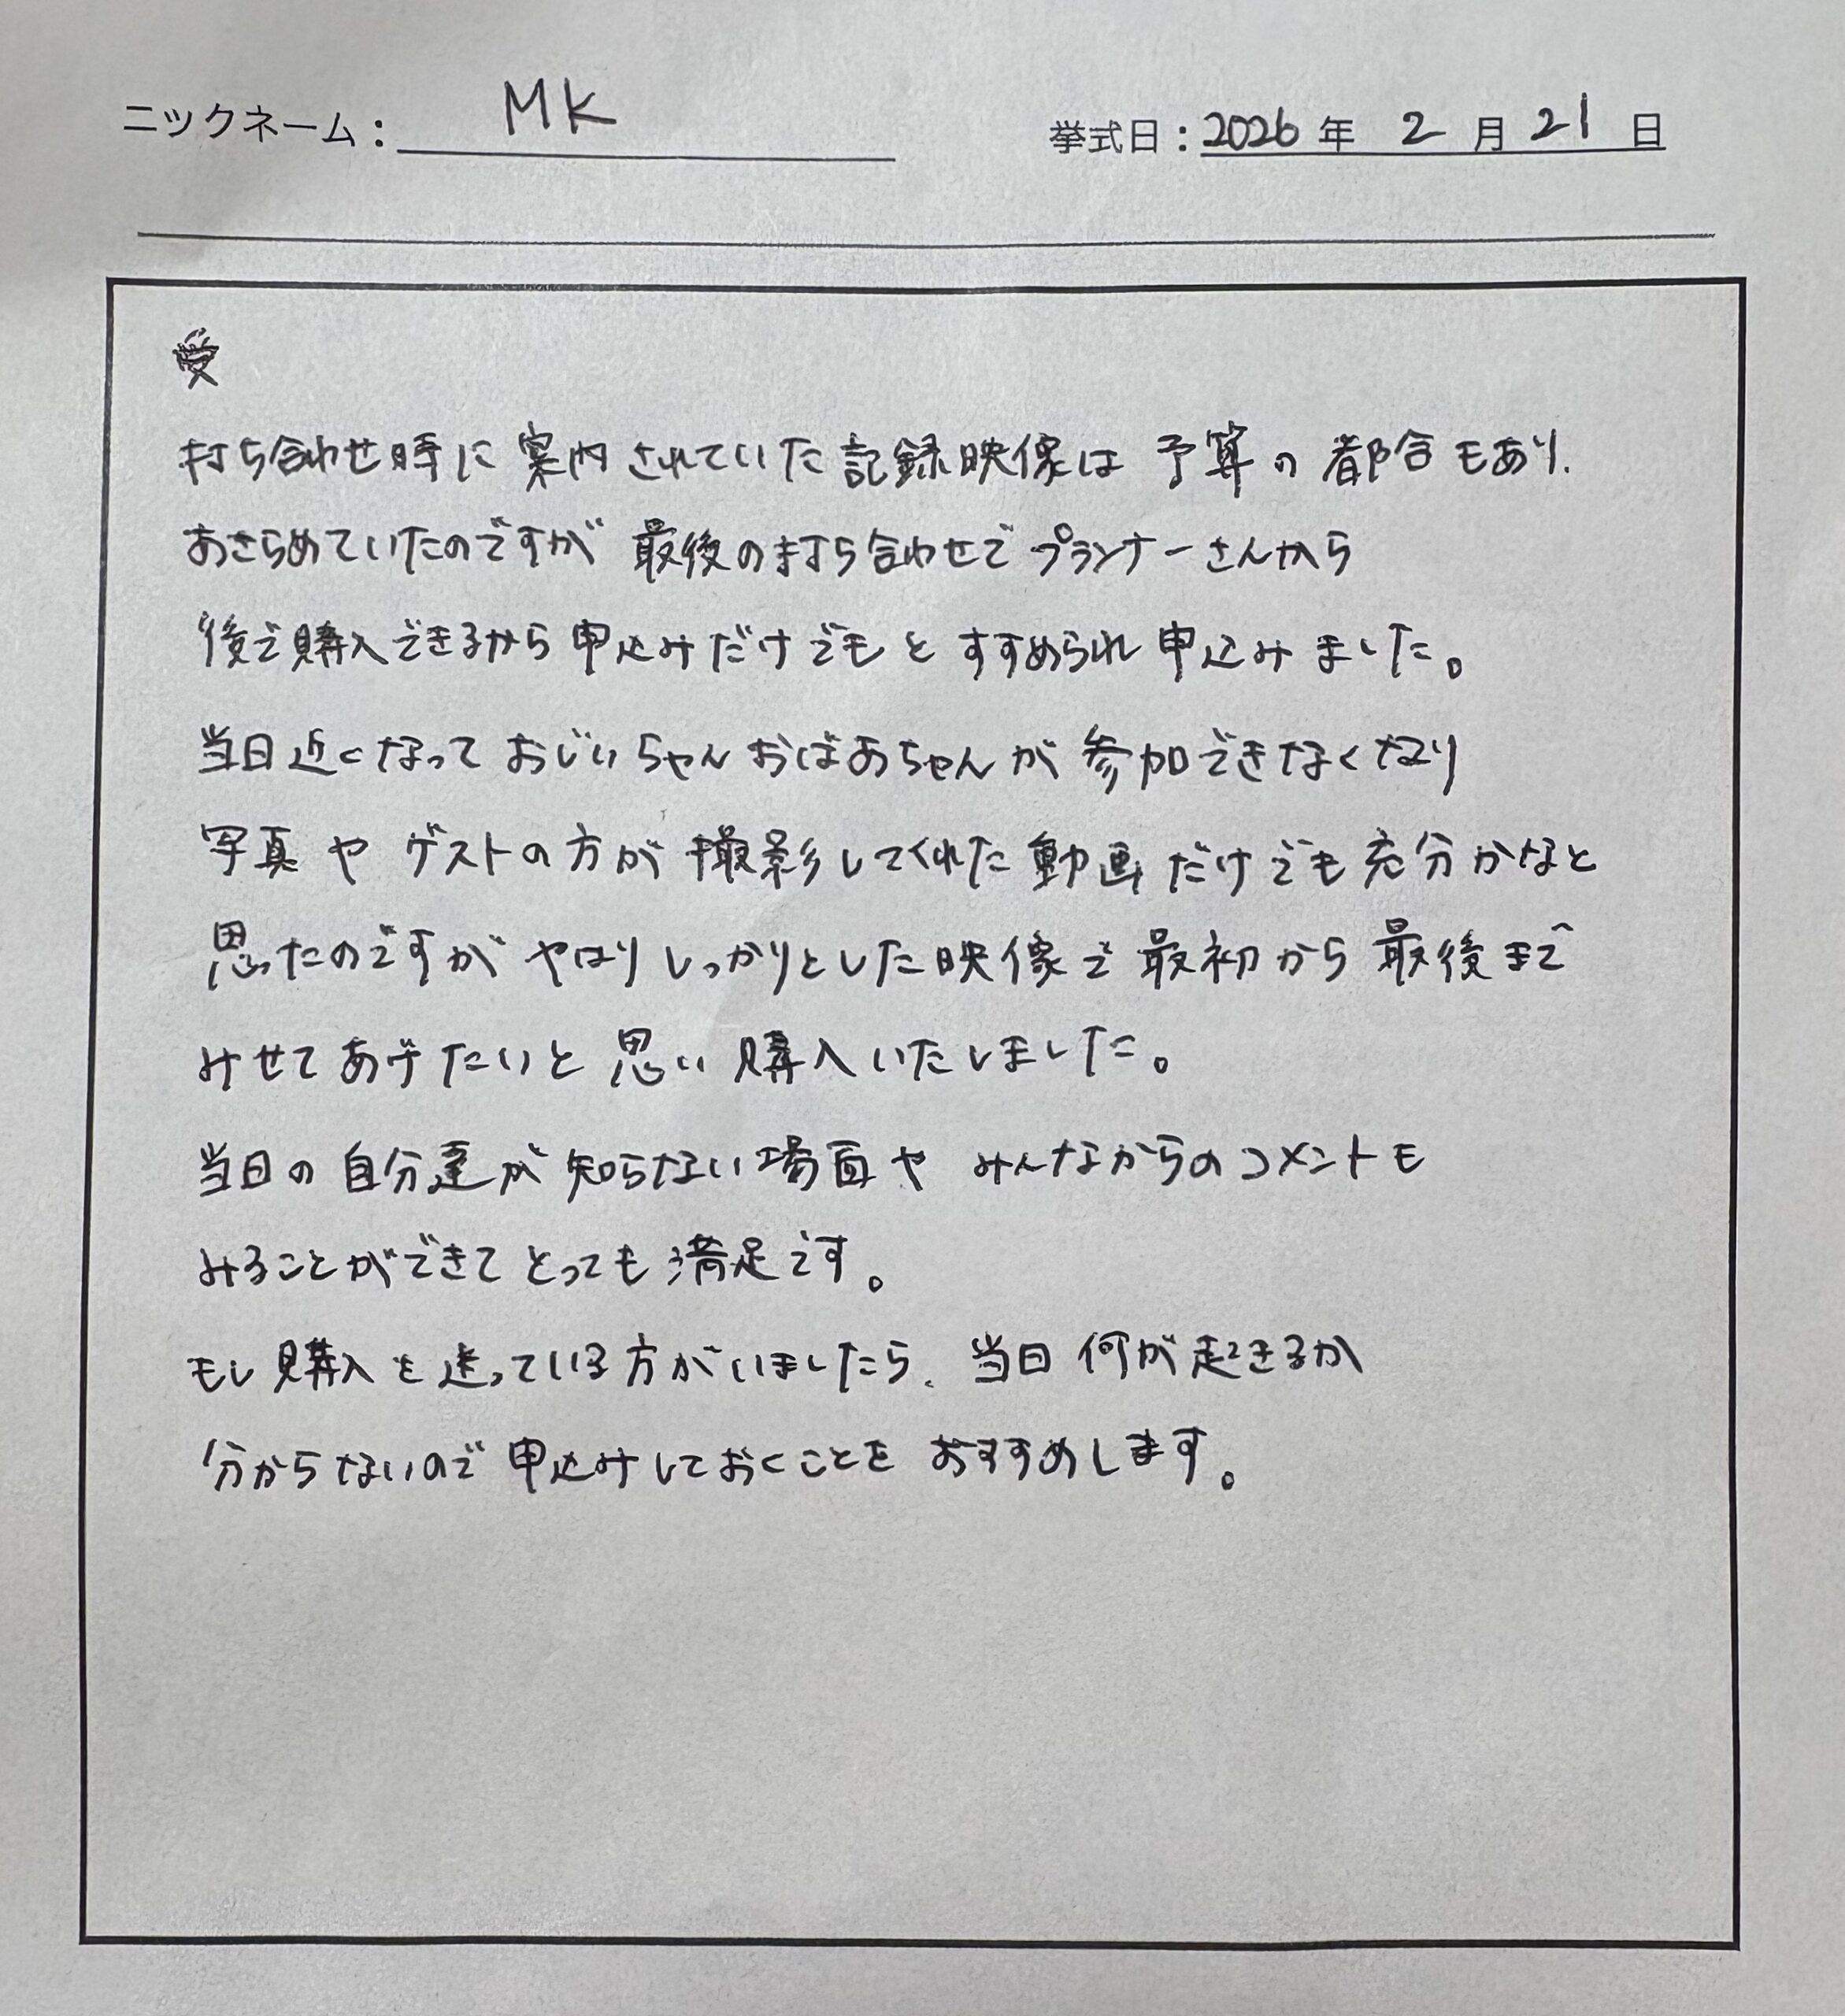 ニックネーム：MK 挙式日：2026年 2月21日
打ち合わせ時に案内されていた記録映像は予算の都合もあり、
あきらめていたのですが最後の打ち合わせでプランナーさんから
後で購入できるから申込みだけでもとすすめられ申込みました。
当日近くなっておじいちゃんおばあちゃんが参加できなくなり
写真やゲストの方が撮影してくれた動画だけでも充分かなと
思ったのですがやはりしっかりとした映像で最初から最後まで
みせてあげたいと思い購入いたしました。
当日の自分達が知らない場面やみんなからのコメントも
みることができてとっても満足です。
もし購入を迷っている方がいましたら、当日何が起きるか
分からないので申込みしておくことをおすすめします。